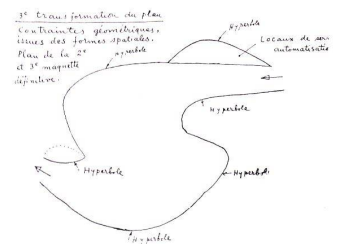 3e transformation du plan
contraintes géométriques,
issues des formes spatiales.
Plan de la 2e
et 3e maquette
définitive.
Hyperbole
Hyperbole
Locaux de ser
automatisatio
Hyperbole
Hyperbole
Hyperbol
Hyperbole